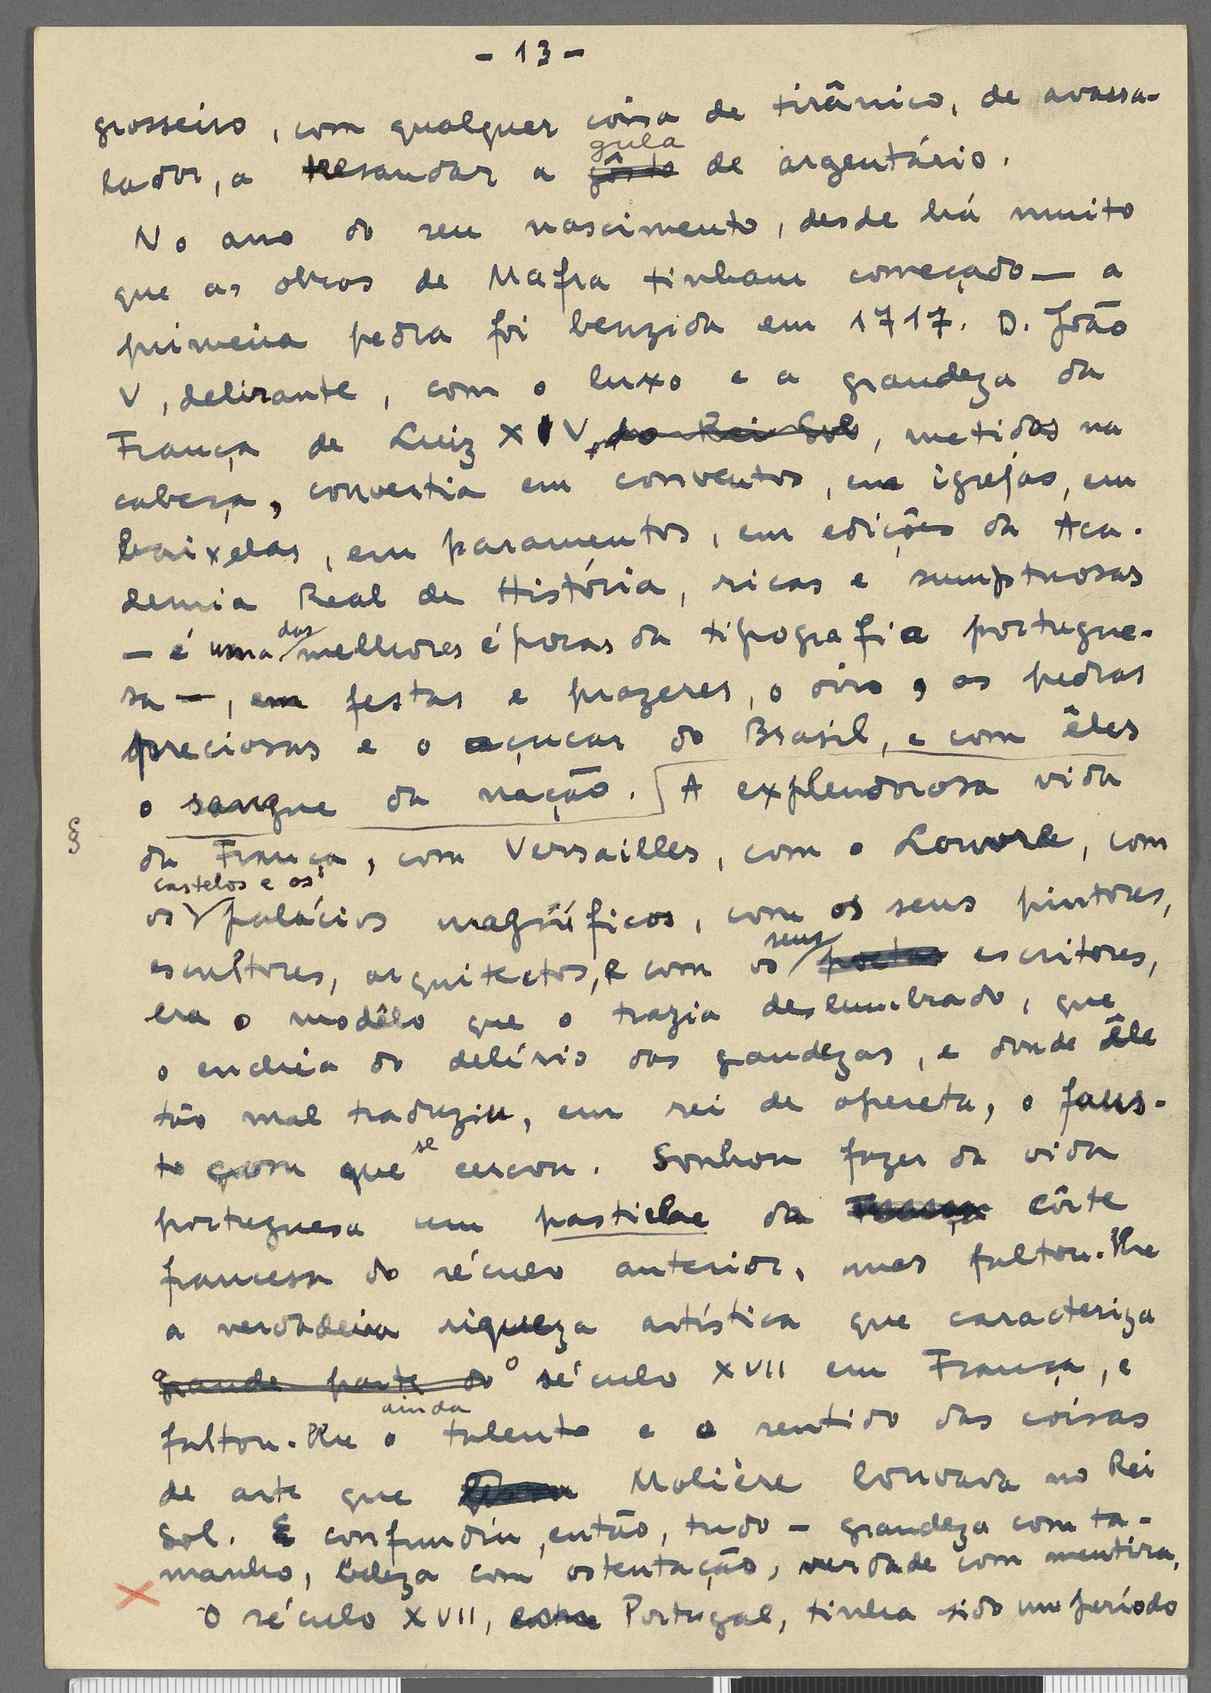 - 13 -
grosseiro, com qualquer coisa de tirânico, de avassa-
lador, a tresandar a gula de argentário.
No ano do seu nascimento, desde há muito
que as obras de Mafra tinham começado — a
primeira pedra foi benzida em 1717. D. João
V, delirante, com o luxo e a grandeza da
França de Luiz XIV, do Rei Sol, metidos na
cabeça, convertia em conventos, em igrejas, em
baixelas, em paramentos, em edições da Aca-
demia Real de História, ricas e sumptuosas
— é uma das melhores épocas da tipografia portugue-
sa —, em festas e prazeres, o oiro, as pedras
preciosas e o açucar do Brasil, e com êles
o sangue da nação. A explendorosa vida
§
da França, com Versailles, com o Louvre, com
os castelos e os palácios magníficos, com os seus pintores,
escultores, arquitectos, e com os seus escritores,
era o modêlo que o trazia deslumbrado, que
o enchia do delírio das grandezas, e donde êle
tão mal traduziu, em rei de opereta, o faus-
to com que se cercou. Sonhou fazer da vida
portuguesa um pastiche da côrte
francesa do século anterior, mas faltou-lhe
a verdadeira riqueza artística que caracteriza
grande parte do o século XVII em França, e
faltou-lhe ainda o talento e o sentido das coisas
de arte que Molière louvava no Rei
Sol. E confundiu, então, tudo - grandeza com ta-
manho, beleza com ostentação, verdade com mentira,
O século XVII, Portugal, tinha sido um período